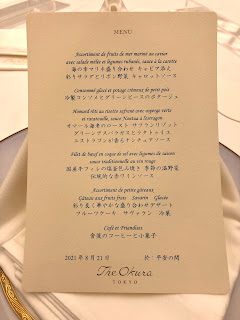 MENU
Assortiment de fruits de mer mariné au caviar
avec salade mêlée et légumes rubanés, sauce à la carotte
海の幸マリネ盛り合わせ キャビア添え
彩りサラダとリボン野菜 キャロットソース
Consommé glacé et potage crémeux de petit pois
冷製コンソメとグリーンピースのポタージュ
Homard rôti au risotto safrané avec asperge verte
et ravioletti, sauce Nantua à l'estragon
オマール海老のロースト サフランリゾット
グリーンアスパラガスとラヴィオレッティ
エストラゴンが香るナンチュアソース
Filet de bœuf en coque de sel avec légumes de saison
sauce traditionnelle au vin rouge
国産牛フィレの塩釜包み焼き 季節の温野菜
伝統的な赤ワインソース
Assortiment de petites gâteaux
Gâteau aux fruits frais Savarin Glacée
彩り良く華やかな盛り合わせデザート
フルーツケーキ サヴァラン 冷菓
Café et Friandises
食後のコーヒーと小菓子
2021年8月21日 於：平安の間
The Okura
TOKYO